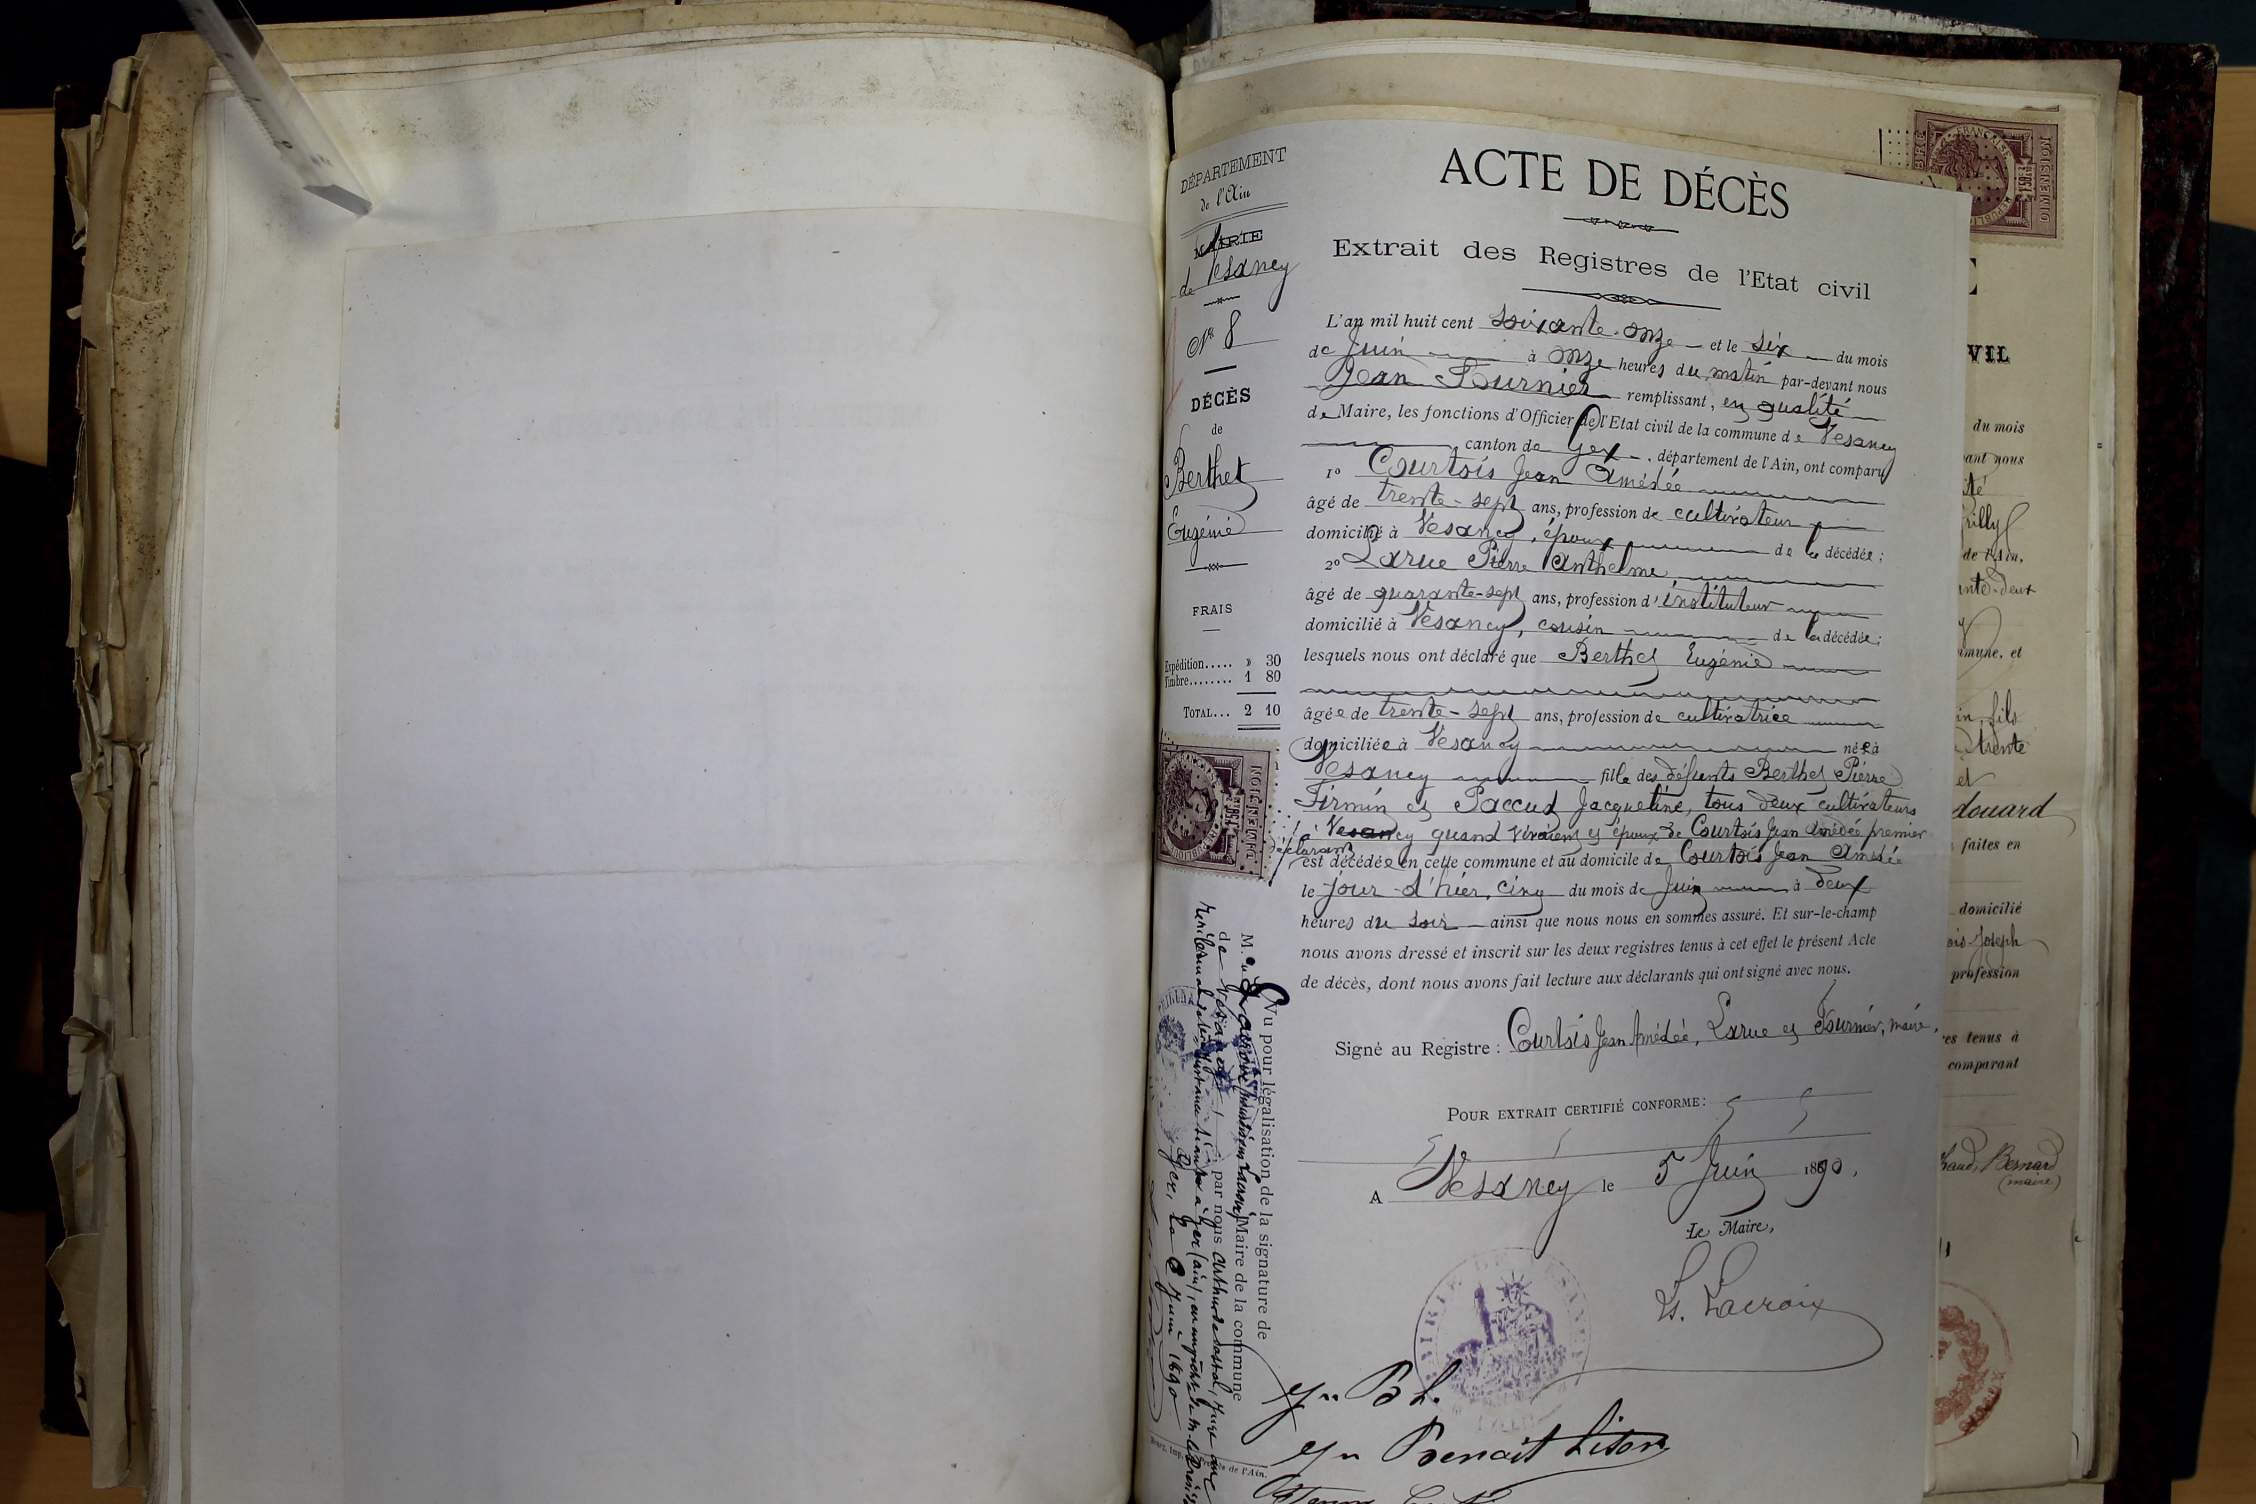 DÉPARTEMENT
de l'Ain
MAIRIE
de Vesancy
N° 8
DÉCÈS
de
Berthet
Eugénie
FRAIS
Expédition..... » 30
Timbre........ 1 80
TOTAL... 2 10
ACTE DE DÉCÈS
Extrait des Registres de l'Etat civil
L'an mil huit cent soixante-onze et le six du mois
de Juin à onze heures du matin par-devant nous
Jean Fournier remplissant, en qualité
de Maire, les fonctions d'Officier de l'Etat civil de la commune de Vesancy
canton de Gex, département de l'Ain, ont comparu
1° Courtois Jean Amédée
âgé de trente-sept ans, profession de cultivateur
domicilié à Vesancy, époux de la décédée;
2° Larue Pierre Anthelme
âgé de quarante-sept ans, profession d'instituteur
domicilié à Vesancy, cousin de la décédée;
lesquels nous ont déclaré que Berthet Eugénie
âgée de trente-sept ans, profession de cultivatrice
domiciliée à Vesancy née à
Vesancy fille des défunts Berthet Pierre
Firmin et Paccud Jacqueline, tous deux cultivateurs
à Vesancy quand vivaient et épouse de Courtois Jean Amédée premier
déclarant
est décédée en cette commune et au domicile de Courtois Jean Amédée
le jour d'hier, cinq du mois de Juin à deux
heures du soir ainsi que nous nous en sommes assuré. Et sur-le-champ
nous avons dressé et inscrit sur les deux registres tenus à cet effet le présent Acte
de décès, dont nous avons fait lecture aux déclarants qui ont signé avec nous.
Signé au Registre : Courtois Jean Amédée, Larue et Fournier, maire.
POUR EXTRAIT CERTIFIÉ CONFORME:
A Vesancy le 5 Juin 1890.
Le Maire,
Ls. Lacroix
Benoit
Vu pour légalisation de la signature de
M. Lacroix Maire de la commune
de Vesancy par nous Arthur
Gex, le Juin 1890
de l'Ain.
FRANÇAISE
DIMENSION
DIMENSION
VIL
du mois
vant nous
ité
rilly
de l'Ain,
ante-deux
mmune, et
fils
trente
et
douard
faites en
domicilié
ois-Joseph
profession
res tenus à
comparant
haud, Bernard
(maire)